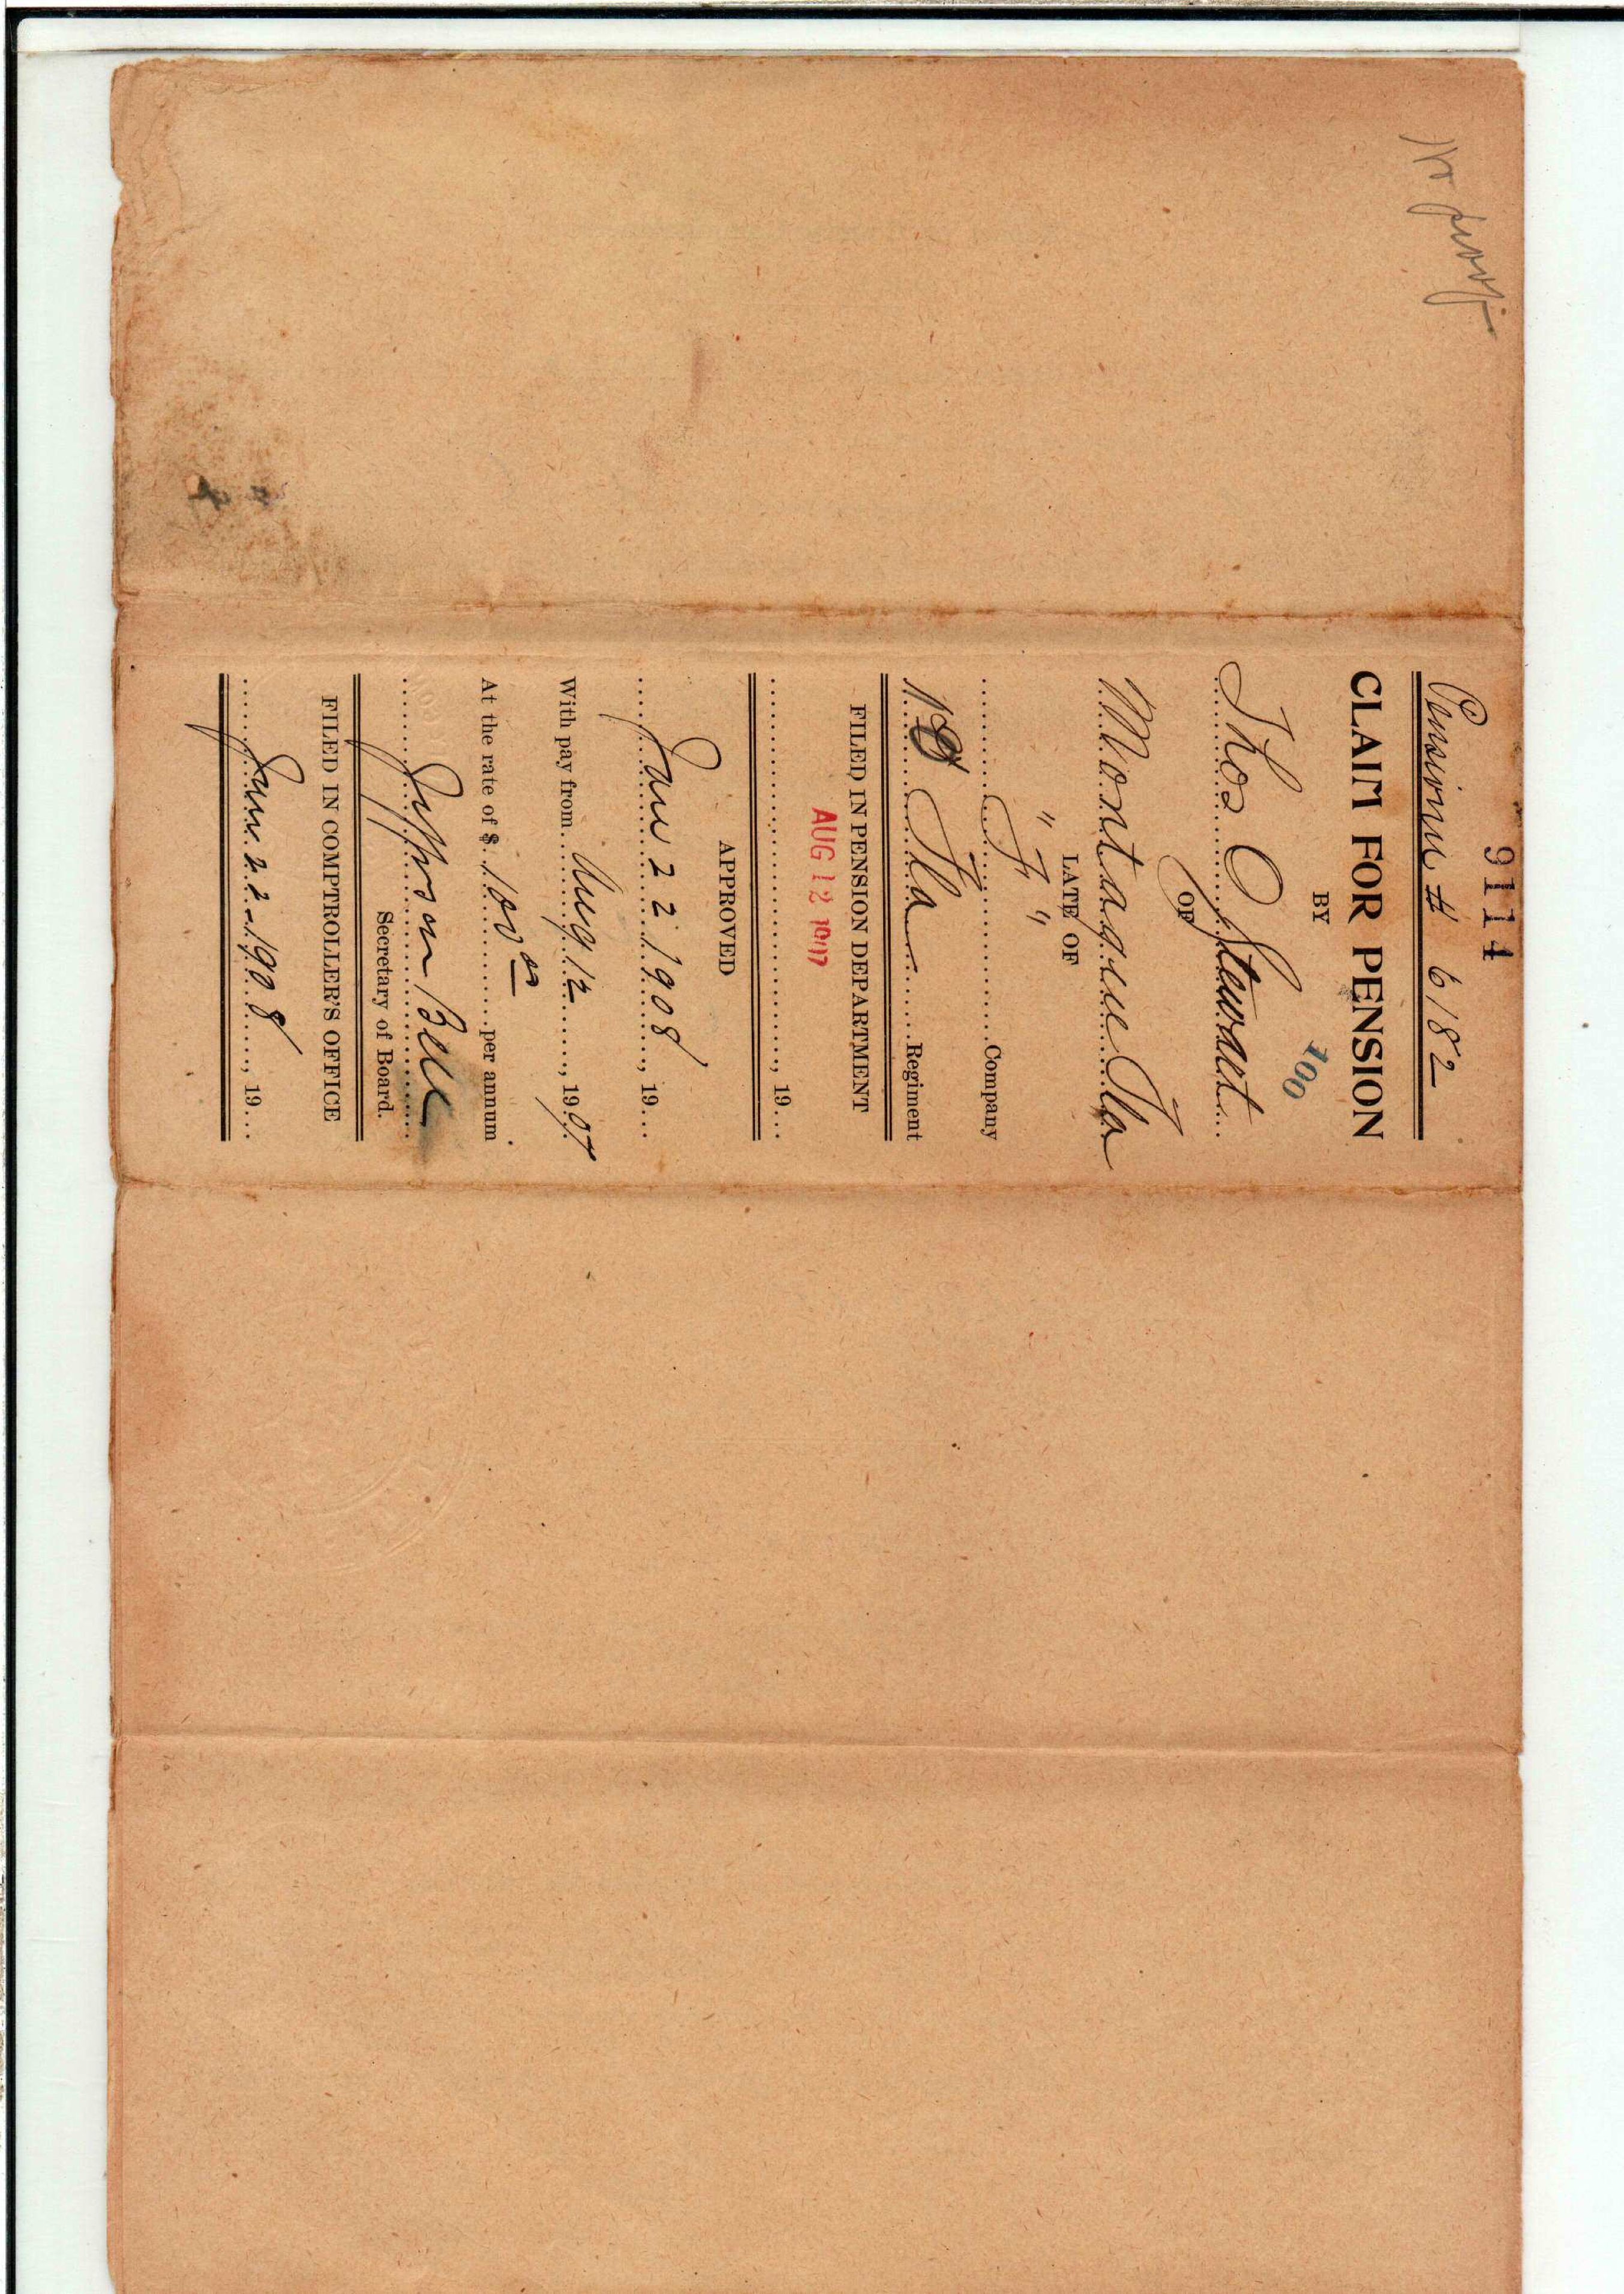 9114
Pensioner # 6182
CLAIM FOR PENSION
BY
100
Thos O Stewart
OF
Montague Fla
LATE OF
" F "
F Company
Fla Regiment
FILED IN PENSION DEPARTMENT
AUG 12 1907
, 19
APPROVED
Jan 22 1908, 19
With pay from Aug 12, 1907
At the rate of $ 100 00 per annum.
Jefferson Bell
Secretary of Board.
FILED IN COMPTROLLER'S OFFICE
Jan. 22-1908, 19
proof